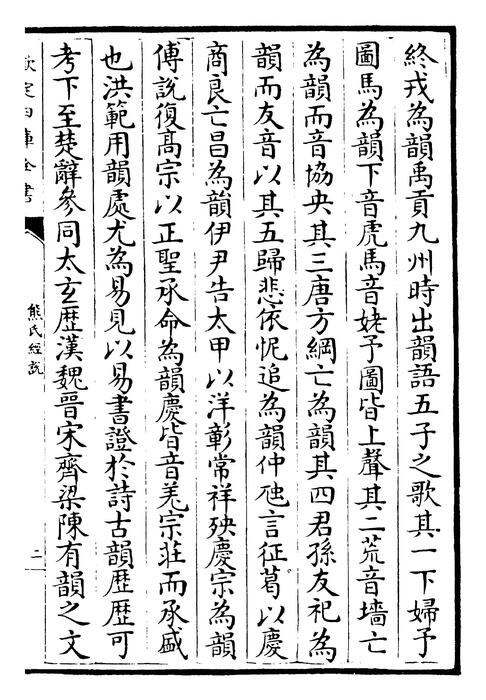 終戎為韻禹貢九州時出韻語五子之歌其一下婦予
圖馬為韻下音虎馬音姥予圖皆上聲其二荒音墻亡
為韻而音協央其三唐方綱亡為韻其四君孫友祀為
韻而友音以其五歸悲依怩追為韻仲虺言征葛以慶
商良亡昌為韻伊尹告太甲以洋彰常祥殃慶宗為韻
傅說復髙宗以正聖承命為韻慶皆音羌宗莊而承盛
也洪範用韻處尤為易見以易書證於詩古韻歴歴可
考下至楚辭參同太玄歴漢魏晉宋齊梁陳有韻之文
欽定四庫全書
熊氏經說
二